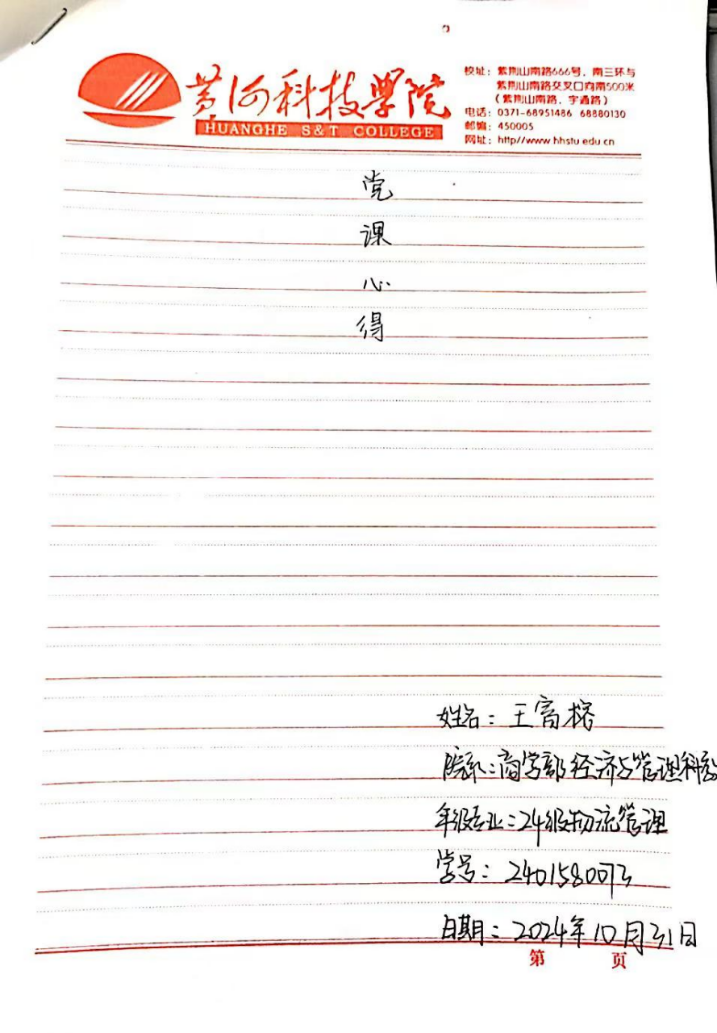 黄河科技学院
HUANGHE S&T COLLEGE
校址：紫荆山南路666号，南三环与
紫荆山南路交叉口向南500米
（紫荆山南路、宇通路）
电话：0371-68951486 68880130
邮编：450005
网址：http//www hhstu edu cn
党
课
心
得
姓名：王富榕
院系：商学部经济与管理科学
年级专业：24级物流管理
学号：
日期：2024年10月31日
第 页